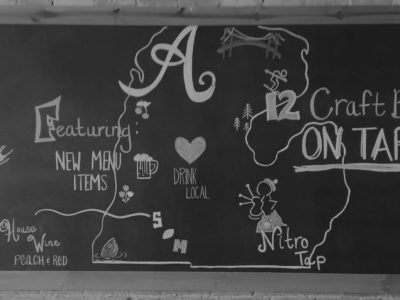 A
Featuring:
NEW MENU
ITEMS
DRINK
LOCAL
12 Craft B
ON TAP
S M
House
Wine
PEACH & RED
Nitro
Tap